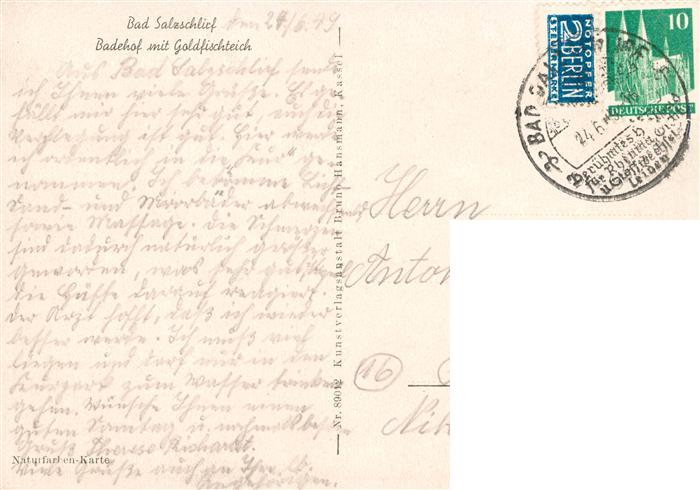 Bad Salzschlirf
den 24/6.49
Badehof mit Goldfischteich
Aus Bad Salzschlirf sende
ich Ihnen viele Grüße. Es ge-
fällt mir hier sehr gut, auch die
Verpflegung ist gut. Hier werde
ich ordentlich in die "Kur" ge-
nommen. Ich bekomme
Sand- und Moorbäder abwech
sowie Massage. Die Schmerzen
sind dadurch natürlich
geworden, was sehr gut
die Hüfte darauf reagiert
der Arzt hofft, daß ich wieder
besser werde. Ich muß viel
liegen und darf nur in den
Kurpark zum Wasser trinken
gehen. Wünsche Ihnen einen
guten Sonntag u. nochmals
Gruß Therese
Viele Grüße auch an Ihre lb.
Angehörigen.
Naturfarben-Karte
Nr. 89012 Kunstverlagsanstalt Bruno Hansmann, Kassel
Herrn
Anton
16
NOTOPFER
2 BERLIN
STEUERMARKE
10
DEUTSCHE POST
BAD SALZSCHLIRF
24.6.
Berühmtes
für Rheuma, Gicht
u. Stoffwechsel-
leiden